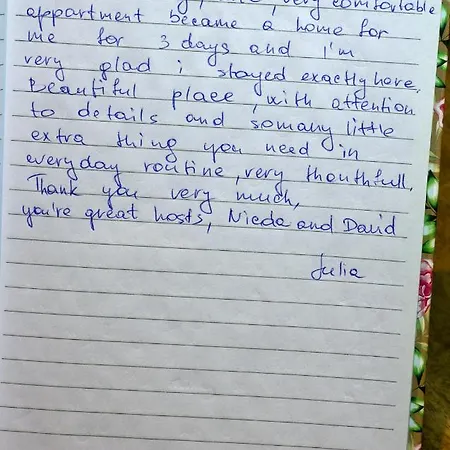 very comfortable
appartment became a home for
me for 3 days and I'm
very glad i stayed exactly here.
Beautiful place, with attention
to details and somany little
extra thing you need in
everyday routine, very thouthfull.
Thank you very much,
you're great hosts, Nieda and David
Julia